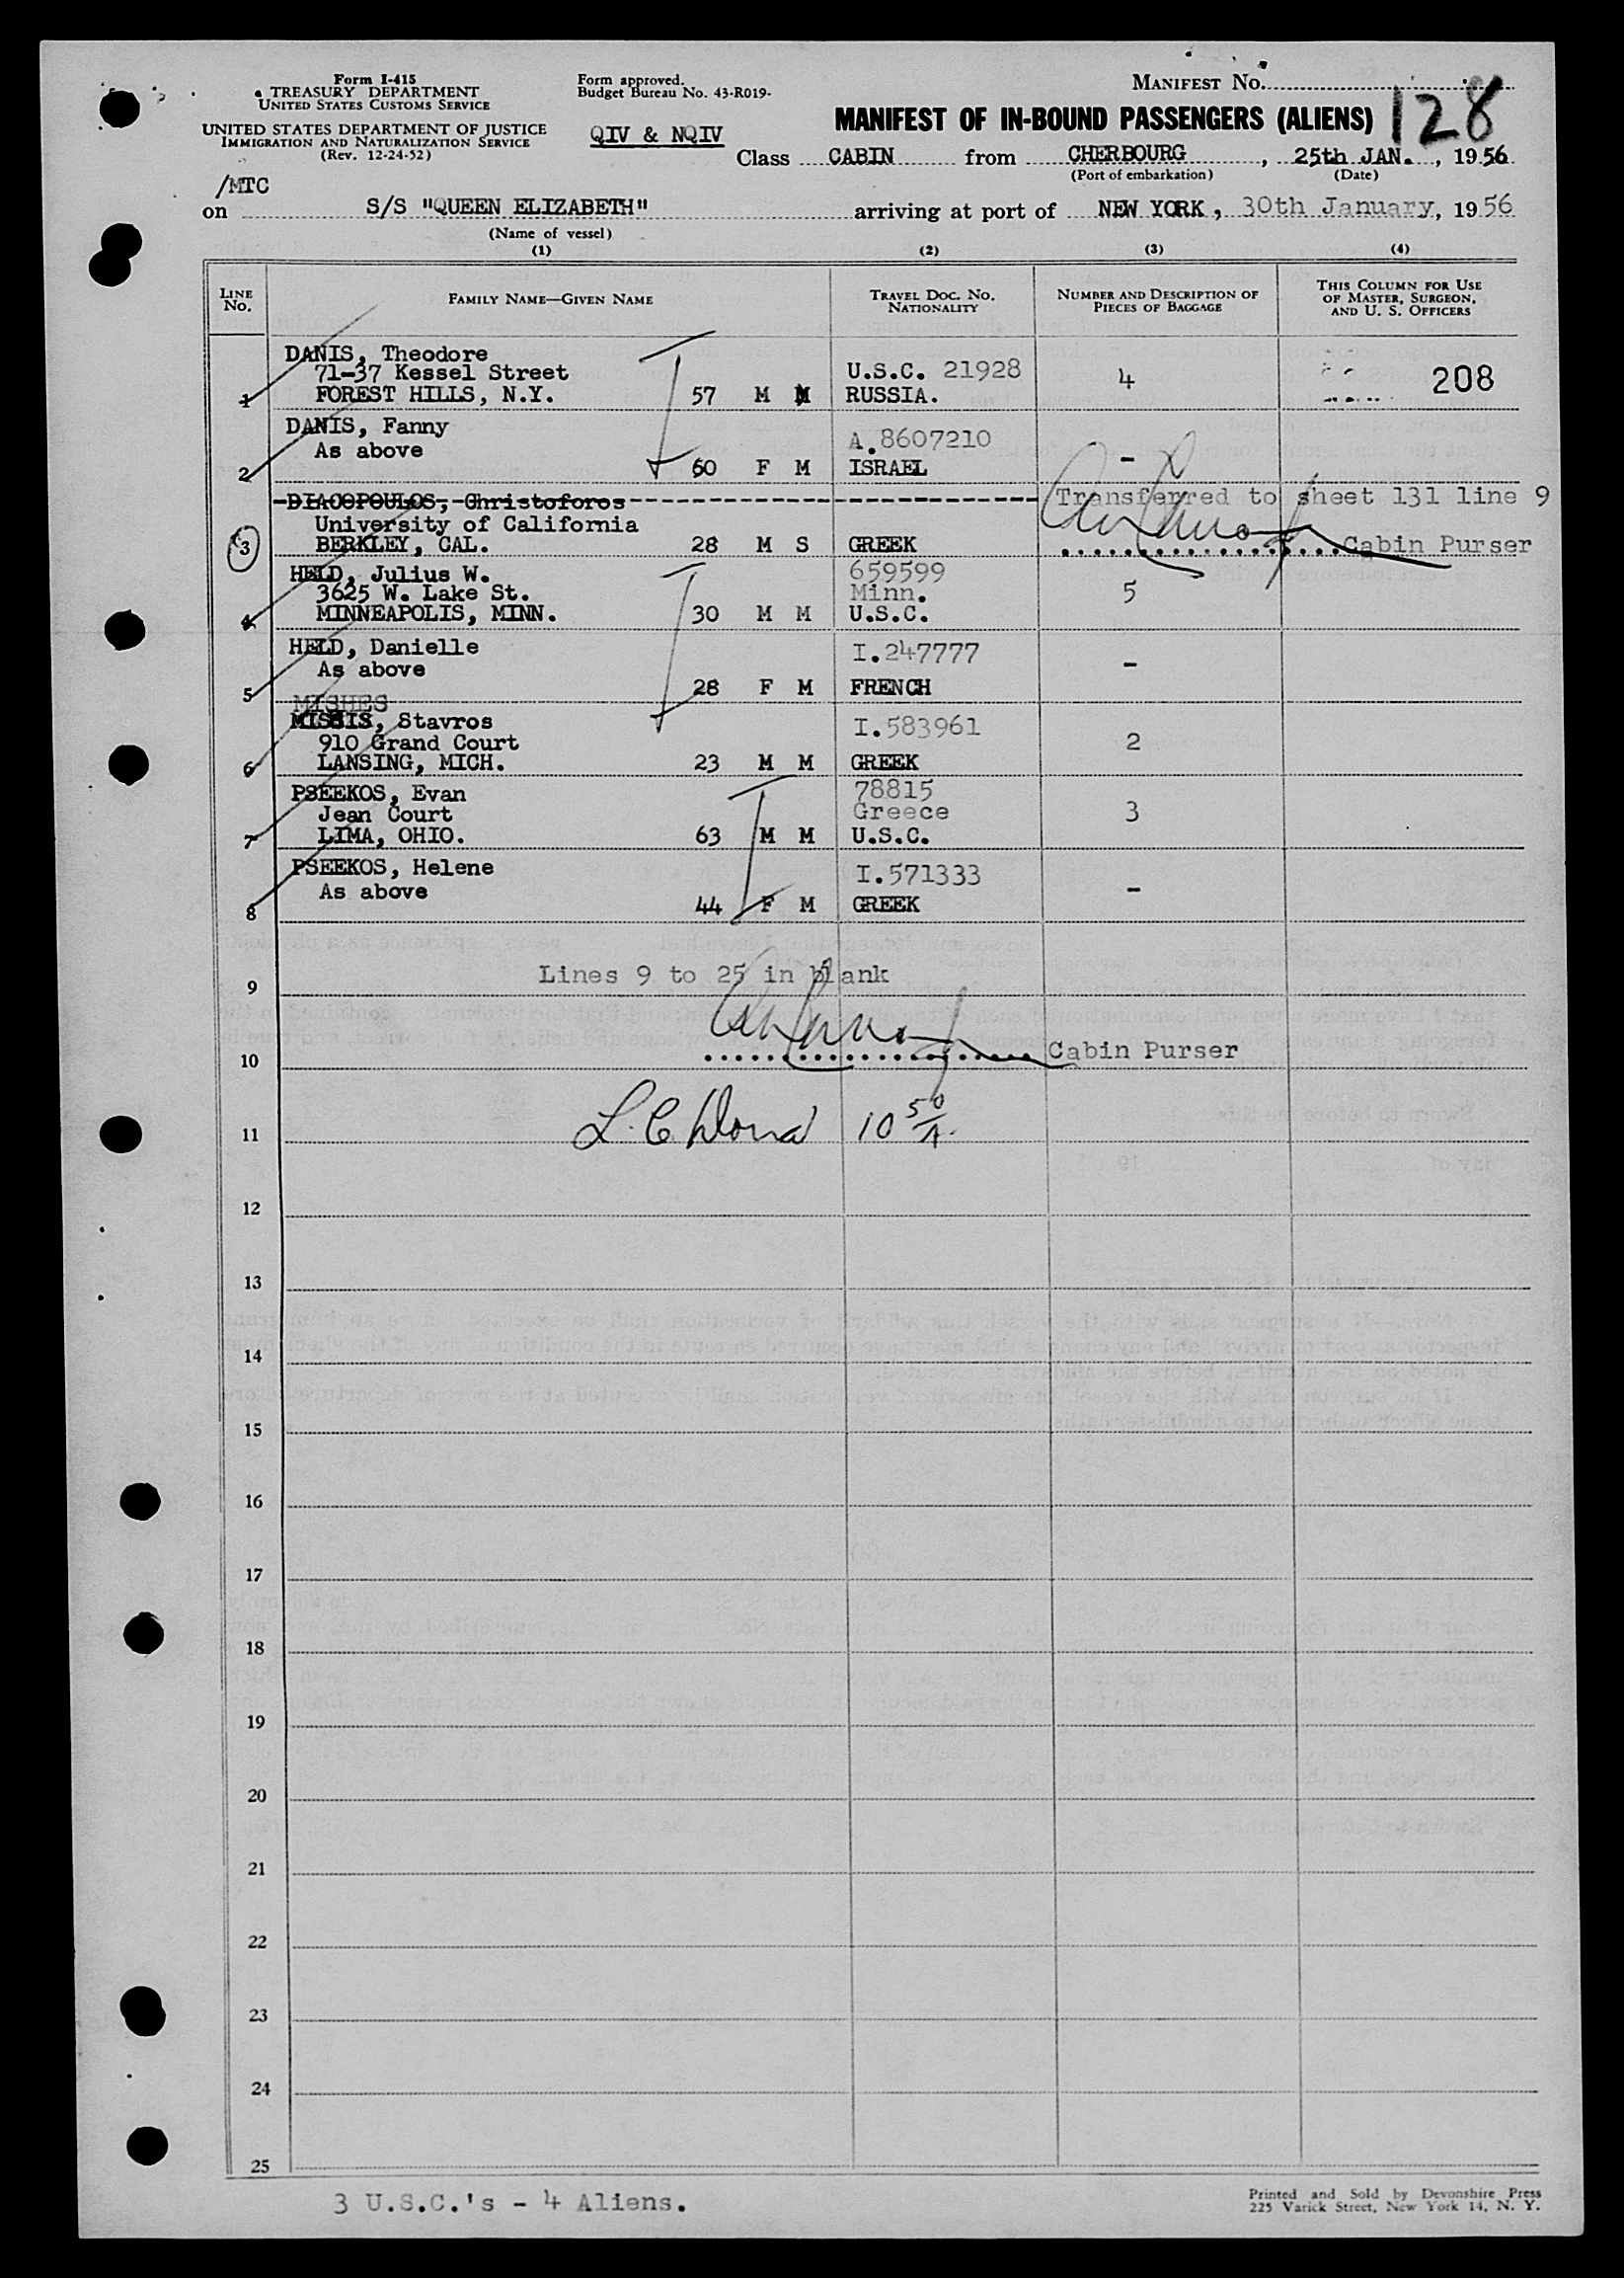 Form I-415
TREASURY DEPARTMENT
UNITED STATES CUSTOMS SERVICE
UNITED STATES DEPARTMENT OF JUSTICE
IMMIGRATION AND NATURALIZATION SERVICE
(Rev. 12-24-52)
Form approved.
Budget Bureau No. 43-R019-
QIV & NQIV
MANIFEST NO.
128
MANIFEST OF IN-BOUND PASSENGERS (ALIENS)
Class CABIN from CHERBOURG, 25th JAN., 1956
(Port of embarkation) (Date)
/MTC
on S/S "QUEEN ELIZABETH" arriving at port of NEW YORK, 30th January, 1956
(Name of vessel)
(1) (2) (3) (4)
LINE NO.
FAMILY NAME—GIVEN NAME
TRAVEL DOC. NO. NATIONALITY
NUMBER AND DESCRIPTION OF PIECES OF BAGGAGE
THIS COLUMN FOR USE OF MASTER, SURGEON, AND U. S. OFFICERS
DANIS, Theodore
71-37 Kessel Street U.S.C. 21928 4 208
1 FOREST HILLS, N.Y. 57 M M RUSSIA.
DANIS, Fanny A.8607210
As above -
2 60 F M ISRAEL
DIACOPOULOS, Christoforos Transferred to sheet 131 line 9
University of California
3 BERKLEY, CAL. 28 M S GREEK Cabin Purser
HELD, Julius W. 659599
3625 W. Lake St. Minn. 5
4 MINNEAPOLIS, MINN. 30 M M U.S.C.
HELD, Danielle I.247777
As above -
5 28 F M FRENCH
MISHES
MISSIS, Stavros I.583961
910 Grand Court 2
6 LANSING, MICH. 23 M M GREEK
PSEEKOS, Evan 78815
Jean Court Greece 3
7 LIMA, OHIO. 63 M M U.S.C.
PSEEKOS, Helene I.571333
As above -
8 44 F M GREEK
Lines 9 to 25 in blank
9
10 Cabin Purser
11 10 50/A.
12
13
14
15
16
17
18
19
20
21
22
23
24
25
3 U.S.C.'s - 4 Aliens.
Printed and Sold by Devonshire Press
225 Varick Street, New York 14, N. Y.